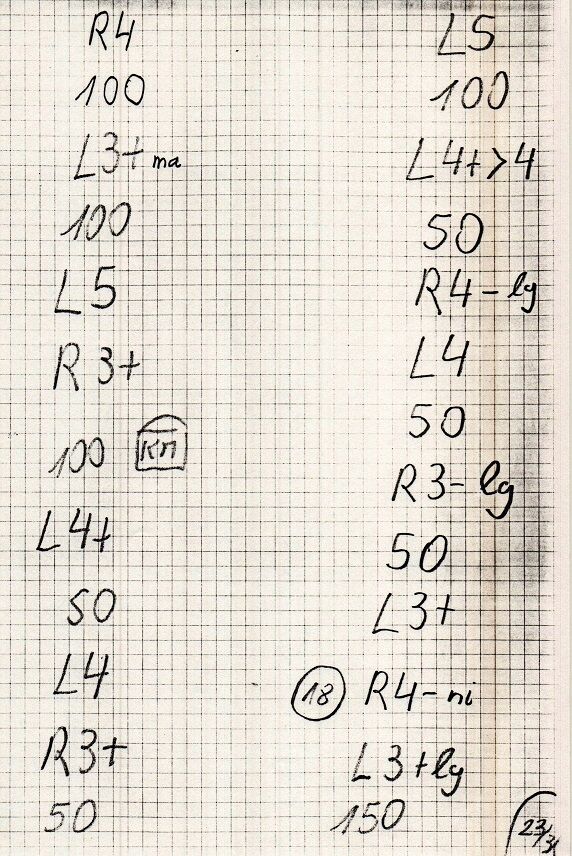 R4
100
L3+ ma
100
L5
R3+
100 КП
L4+
50
L4
R3+
50
L5
100
L4+>4
50
R4- lg
L4
50
R3- lg
50
L3+
18 R4- ni
L3+lg
150